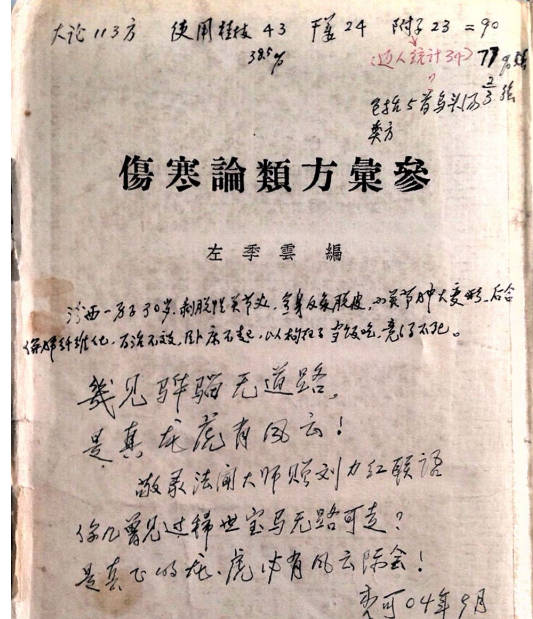 大论113方 使用桂枝43 干姜24 附子23=90
38.5%
(近人统计34) 77%强
包括5首乌头汤 2/3强
类方
傷寒論類方彙參
左季雲 編
汾西一男子30岁,剥脱性关节炎,全身反复脱皮,小关节肿大变形,后合
併肺纤维化,百治不效,卧床不起,以枸杞子当饭吃,竟得不死。
几见骅骝无道路,
是真龙虎有风云!
敬录法闻大师赠刘力红联语
你几曾见过稀世宝马无路可走?
是真飞的龙、虎必有风云际会!
李可04年9月